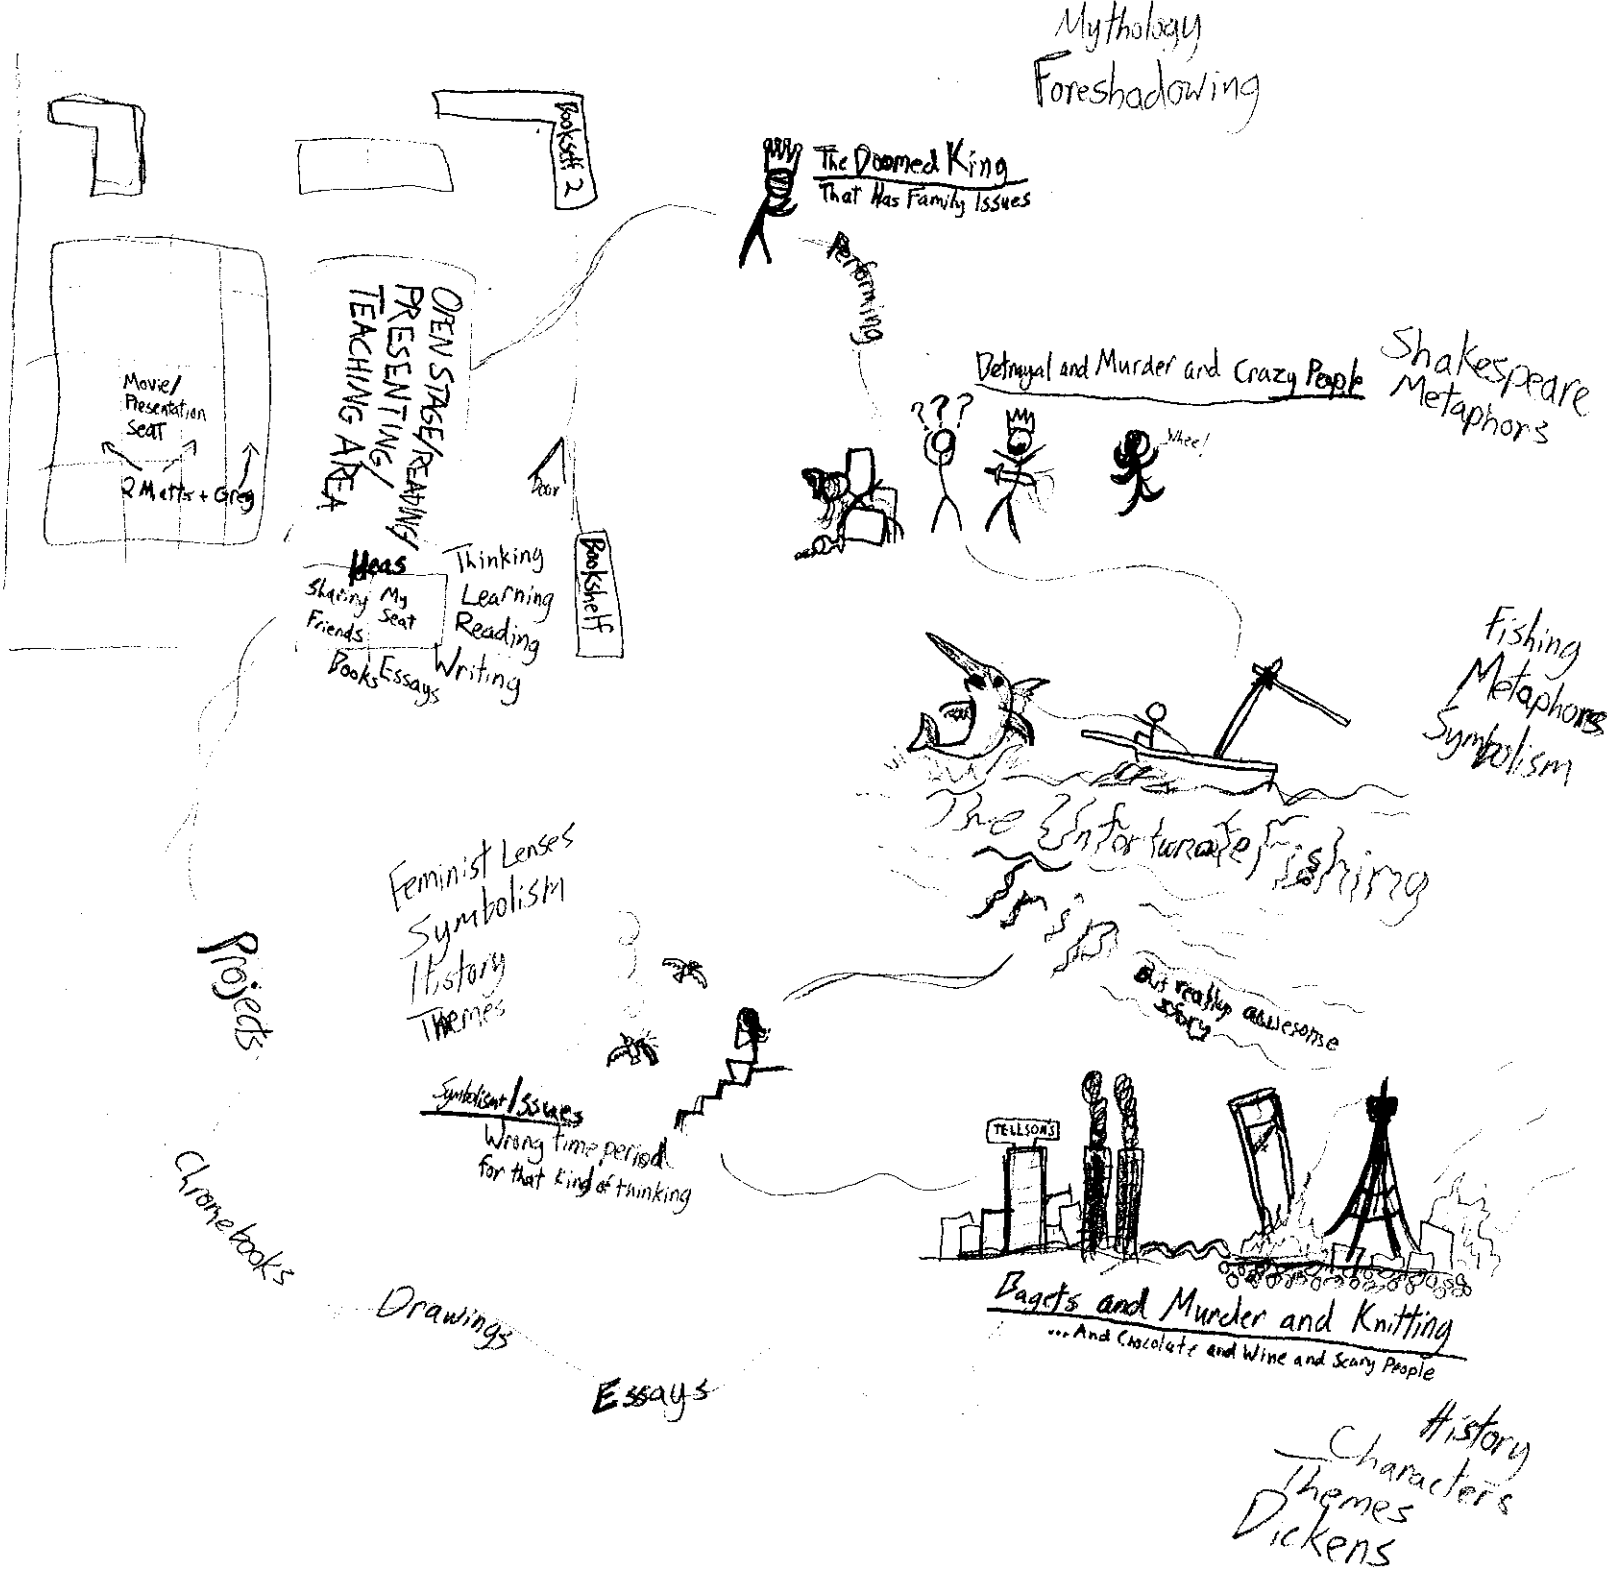 Mythology
Foreshadowing
Bookself 2
The Doomed King
That Has Family Issues
Performing
OPEN STAGE/READING/
PRESENTING/
TEACHING AREA
Movie/
Presentation
seat
2 Matts + Greg
Door
Bookshelf
Betrayal and Murder and Crazy People
Shakespeare
Metaphors
???
Whee!
Ideas
Sharing
Friends
My
Seat
Books
Essays
Thinking
Learning
Reading
Writing
Fishing
Metaphors
Symbolism
The Unfortunate Fishing
Trip
But really awesome
story
Feminist Lenses
Symbolism
History
Themes
Symbolism+Issues
Wrong time period
for that kind of thinking
Projects
Chromebooks
Drawings
Essays
TELLSON'S
Bagets and Murder and Knitting
...And Chocolate and Wine and Scary People
History
Characters
Themes
Dickens